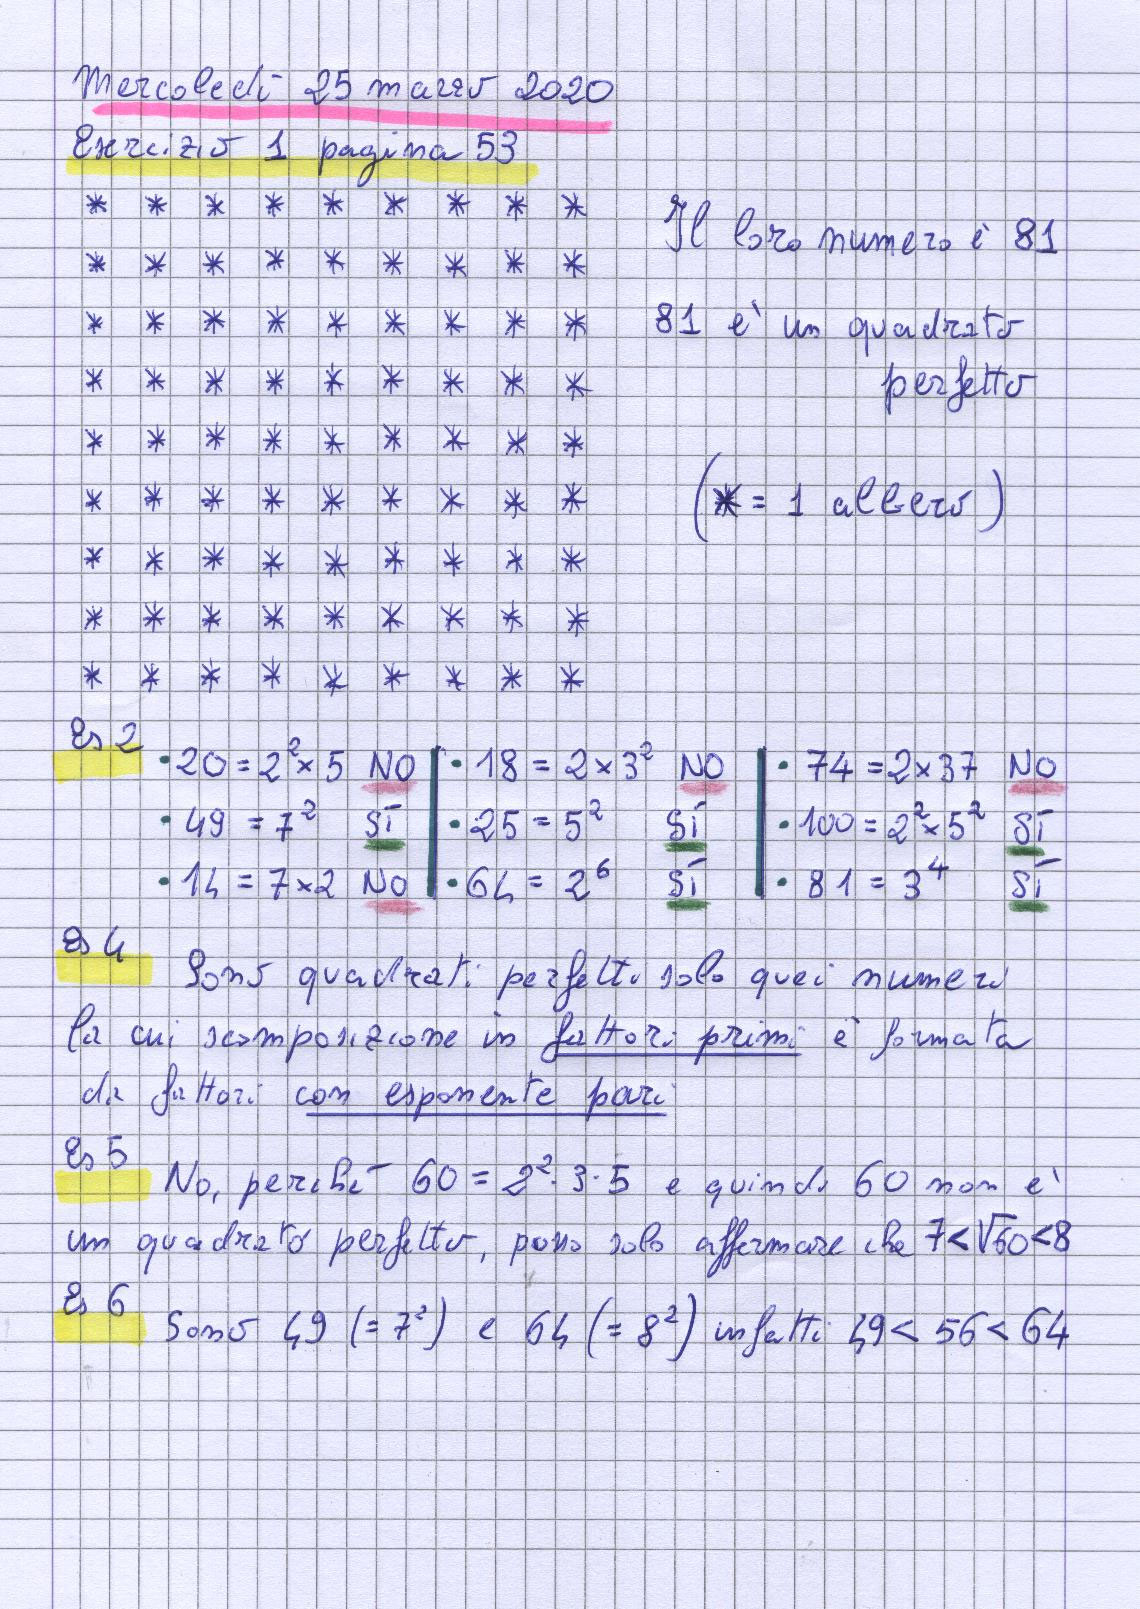 Mercoledì 25 marzo 2020
Esercizio 1 pagina 53
* * * * * * * * *
* * * * * * * * *
* * * * * * * * *
* * * * * * * * *
* * * * * * * * *
* * * * * * * * *
* * * * * * * * *
* * * * * * * * *
* * * * * * * * *
Il loro numero è 81
81 è un quadrato
perfetto
(* = 1 albero)
Es 2
· 20 = 2² × 5 NO
· 49 = 7² SÌ
· 14 = 7 × 2 NO
· 18 = 2 × 3² NO
· 25 = 5² SÌ
· 64 = 2⁶ SÌ
· 74 = 2 × 37 NO
· 100 = 2² × 5² SÌ
· 81 = 3⁴ SÌ
Es 4 Sono quadrati perfetti solo quei numeri
la cui scomposizione in fattori primi è formata
da fattori con esponente pari
Es 5 No, perché 60 = 2² · 3 · 5 e quindi 60 non è
un quadrato perfetto, posso solo affermare che 7 < √60 < 8
Es 6 Sono 49 (= 7²) e 64 (= 8²) infatti 49 < 56 < 64